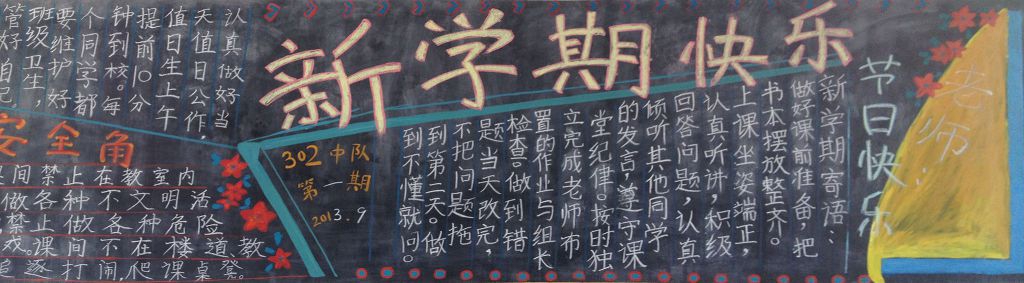 新学期快乐
老师：
节日快乐
新学期寄语：
做好课前准备，把
书本摆放整齐。
上课坐姿端正，
认真听讲，积级
回答问题，认真
倾听其他同学
的发言，遵守课
堂纪律。按时独
立完成老师布
置的作业与组长
检查。做到错
题当天改完，
不把问题拖
到第二天。做
到不懂就问。
302中队
第一期
2013.9
认真做好当
天值日公作，
值日生上午
提前10分
钟到校。每
个同学都
要维护好
班级卫生，
管好自己
安全角
间禁止在教室内
做各种不文明活
禁止做各种危险
戏。课间不在楼道教
追逐打闹，爬课桌凳。